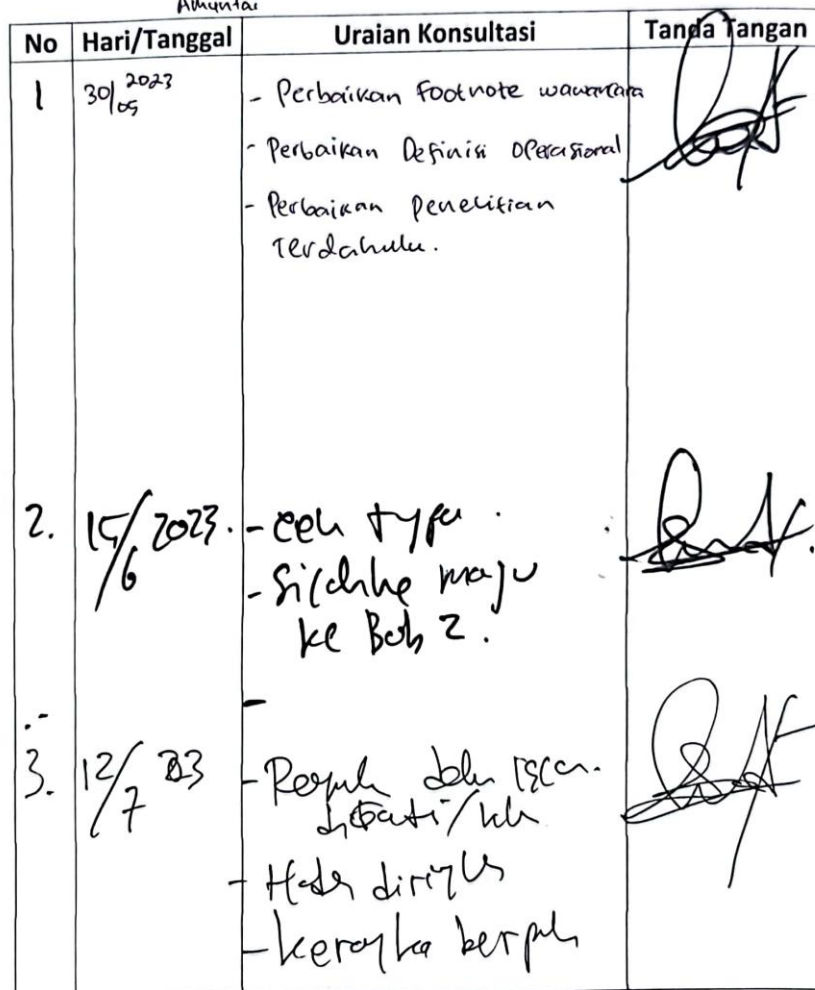 Amuntai
No Hari/Tanggal Uraian Konsultasi Tanda Tangan
1 30/05 2023 - Perbaikan Footnote wawancara
- Perbaikan Definisi Operasional
- Perbaikan penelitian
Terdahulu.
2. 15/6 2023. - cek typo.
- Silahke maju
ke Bab 2.
-
3. 12/7 23 -
- diringks
- berpikir